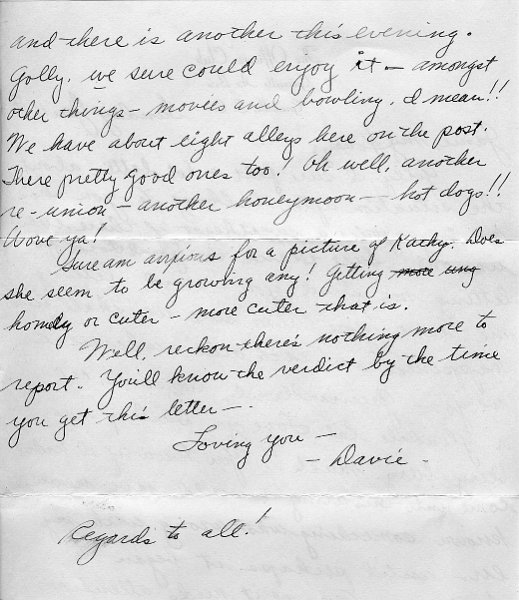 and there is another this evening.
Golly, we sure could enjoy it - amongst
other things - movies and bowling, I mean!!
We have about eight alleys here on the post.
There pretty good ones too! Oh well, another
re-union - another honeymoon - hot dogs!!
Wove ya!
Sure am anxious for a picture of Kathy. Does
she seem to be growing any? Getting more
homely or cuter - more cuter that is.
Well, reckon there's nothing more to
report. You'll know the verdict by the time
you get this letter -.
Loving you -
- Davie -
Regards to all!